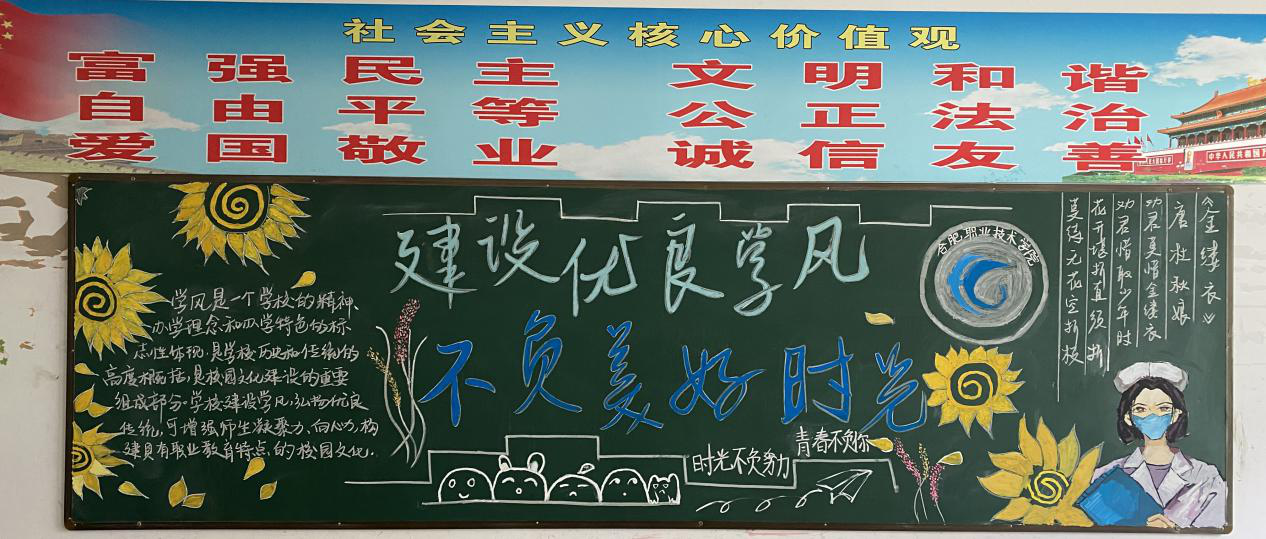 社会主义核心价值观
富强 民主 文明 和谐
自由 平等 公正 法治
爱国 敬业 诚信 友善
中华人民共和国万
建设优良学风
不负美好时光
学风是一个学校的精神、
办学理念和办学特色的标
志性体现.是学校历史和传统的
高度概括.是校园文化建设的重要
组成部分.学校建设学风.弘扬优良
传统,可增强师生凝聚力、向心力,构
建具有职业教育特点的校园文化.
时光不负努力
青春不负你
合肥职业技术学院
《金缕衣》
唐 杜秋娘
劝君莫惜金缕衣
劝君惜取少年时
花开堪折直须折
莫待无花空折枝